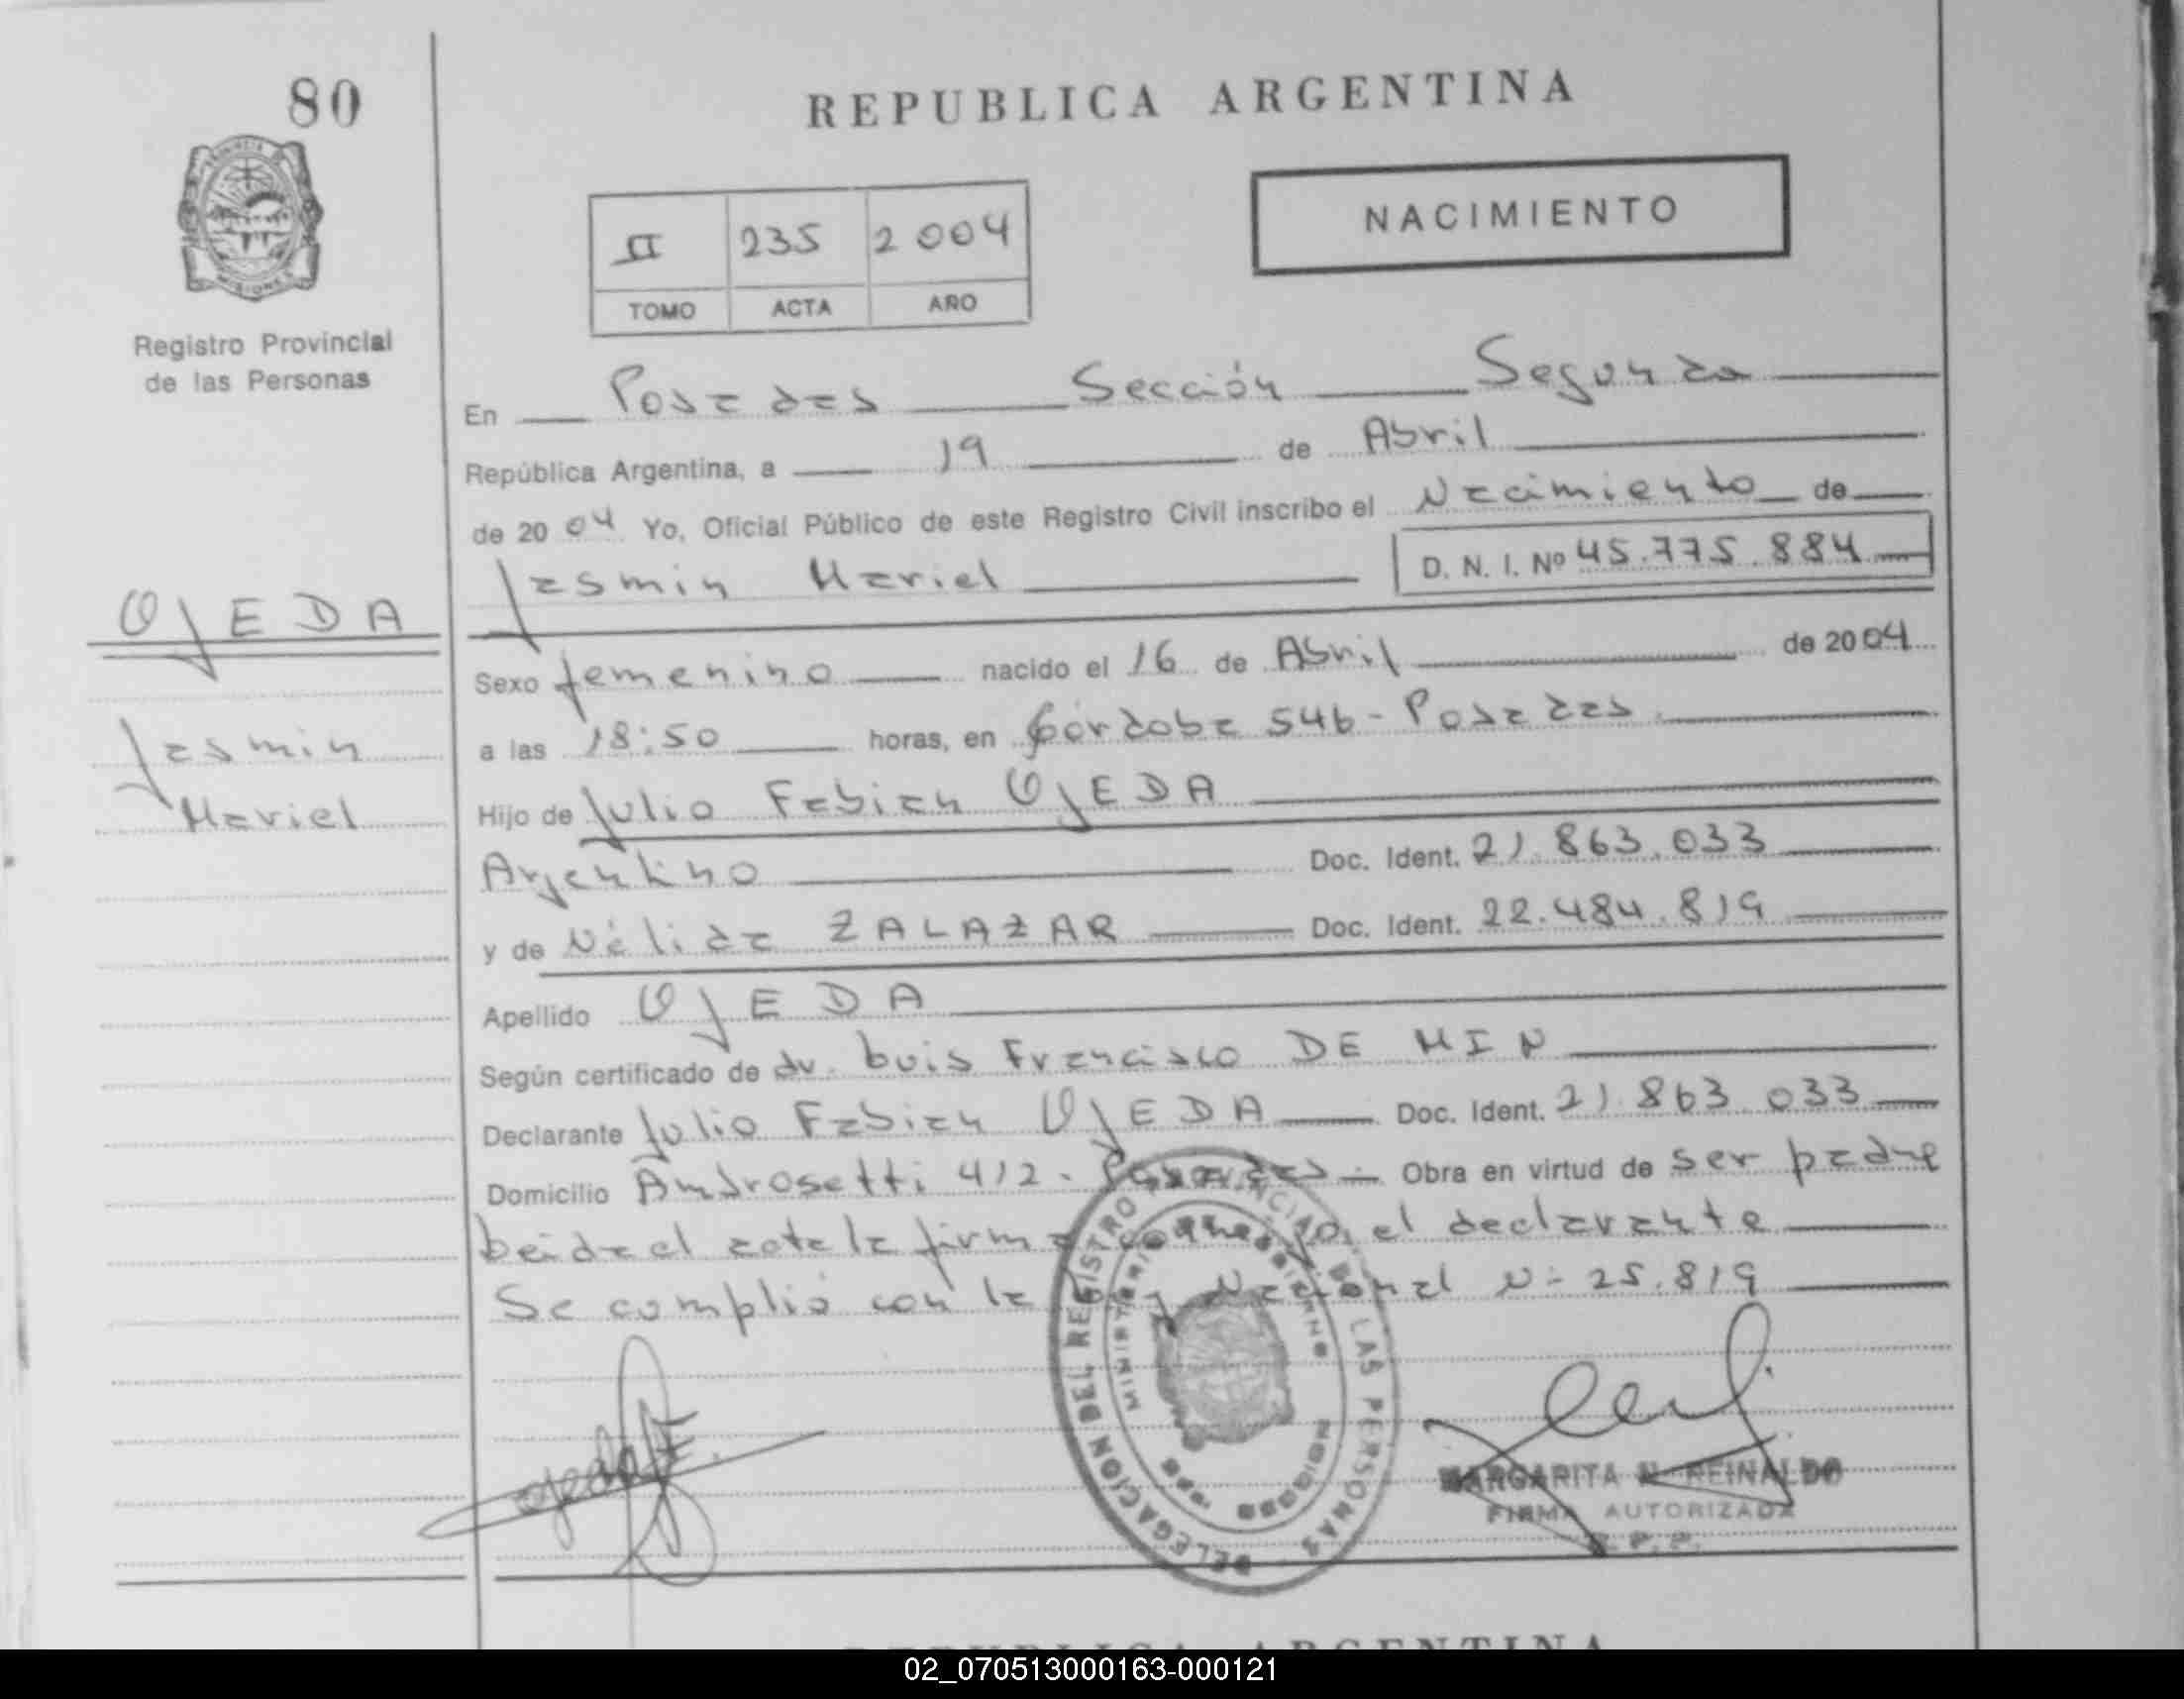 80
REPUBLICA ARGENTINA
NACIMIENTO
II 235 2004
TOMO ACTA AÑO
Registro Provincial
de las Personas
En Posadas Sección Segunda
República Argentina, a 19 de Abril
de 2004 Yo, Oficial Público de este Registro Civil inscribo el Nacimiento de
Jasmin Mariel D. N. I. Nº 45.775.884
OJEDA
Sexo femenino nacido el 16 de Abril de 2004
Jasmin
a las 18:50 horas, en Córdoba 546 - Posadas
Mariel
Hijo de Julio Fabian OJEDA
Argentino Doc. Ident. 21.863.033
y de Nélida ZALAZAR Doc. Ident. 22.484.819
Apellido OJEDA
Según certificado de dr. Luis Francisco DE MIN
Declarante Julio Fabian OJEDA Doc. Ident. 21.863.033
Domicilio Ambrosetti 412 - Posadas - Obra en virtud de ser padre
Leida el acta la firma conmigo el declarante
Se cumplió con la Ley Nacional N- 25.819
DELEGACION DEL REGISTRO PROVINCIAL DE LAS PERSONAS
MISIONES
MARGARITA N. REINALDO
FIRMA AUTORIZADA
R.P.P.
REPUBLICA ARGENTINA
02_070513000163-000121